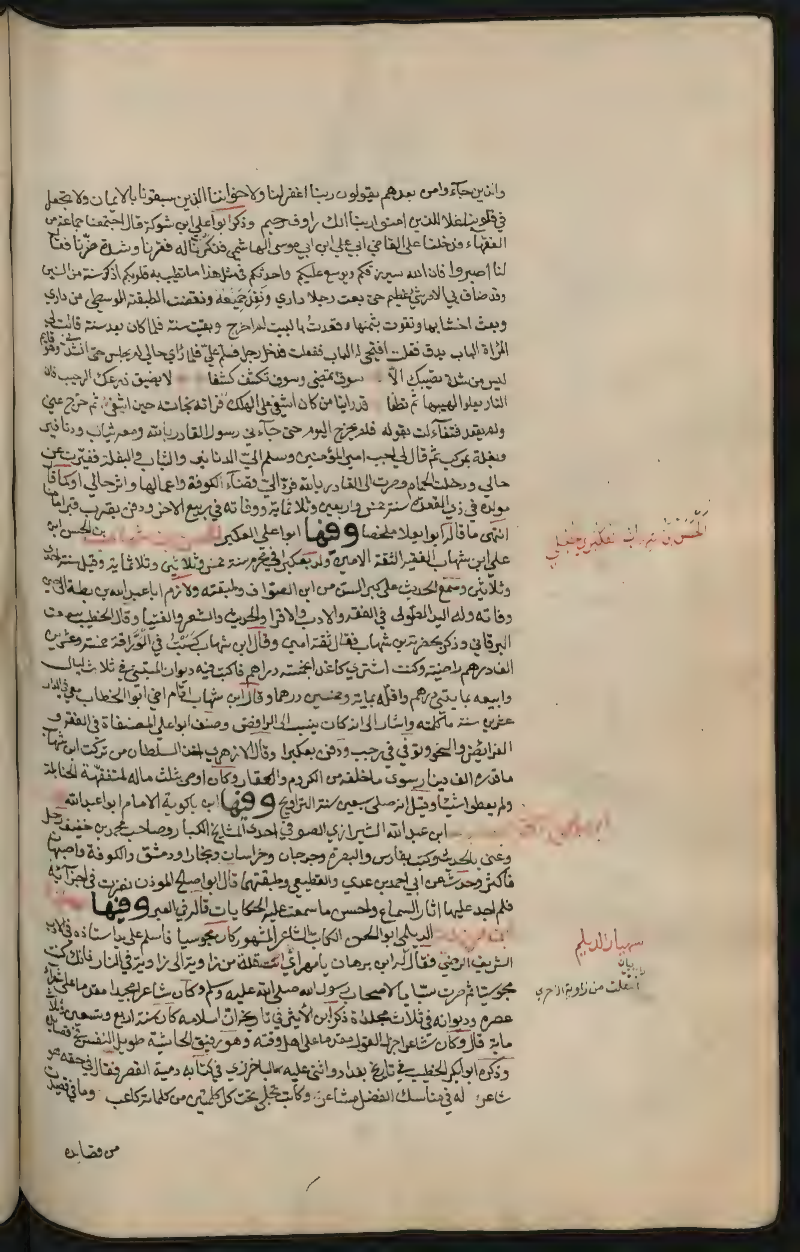 والذين جآءوا من بعدهم يقولون ربنا اغفر لنا ولاخواننا الذين سبقونا بالايمان ولا تجعل
في قلوبنا غلا للذين امنوا ربنا انك راوف رحيم وذكر ابو علي ابن شوكة قال اجتمعنا جماعة من
الفقهاء فدخلنا على القاضي ابي علي ابن ابي موسى الهاشمي فذكرنا له فقرنا وشدة ضرنا فقال
لنا اصبروا فان الله سيرزقكم ويوسع عليكم واحدثكم في مثل هذا ما تطيب به قلوبكم اذكر سنة من السنين
وقد ضاق بي الامر شي عظيم حتى بعت رحل داري ونفذ جميعه ونقضت الطبقة الوسطى من داري
وبعت اخشابها وتقوت بثمنها وقعدت بالبيت لم اخرج وبقيت سنة فلما كان بعد سنة قالت لي
المراة الباب يدق فقلت افتحي له الباب ففعلت فدخل رجل فسلم علي فلما راى حالي لم يجلس حتى انشدني وهو قايم
ليس من شدة تصيبك الا سوف تمضي وسوف تكشف كشفا لا يضق ذرعك الرحيب فان
النار يعلو لهيبها ثم تطفا قد راينا من كان اشفى على الهلك فوافته نجاته حين اشفى ثم خرج عني
ولم يقعد فتفآءلت بقوله فلم يخرج اليوم حتى جآءني رسول القادر بالله ومعه ثياب ودنانير
وبغلة بمركب ثم قال لي اجب امير المؤمنين وسلم الي الدنانير والثياب والبغلة فغيرت عن
حالي ودخلت الحمام وصرت الى القادر بالله فرد الي قضآء الكوفة واعمالها واثر حالي او كما قال
مولده في ذي القعدة سنة خمس واربعين وثلاثماية ووفاته في ربيع الاخر ودفن بقرب قبر امامنا
انتهى ما قاله ابو يعلا ملخصا وفيها ابو على العكبري الحسن بن شهاب بن الحسن ابن
علي ابن شهاب الفقير الثقة الامين ولد بعكبرا في محرم سنة خمس وثلاثين وثلاثماية وقيل سنة احدى
وثلاثين وسمع الحديث على كبر السن من ابن الصواف وطبقته ولازم ابا عبد الله بن بطة الى حين
وفاته وله اليد الطولى في الفقه والادب والاقرا والحديث والشعر والفتيا وقال الخطيب سمعت
البرقاني وذكر بحضرته ابن شهاب فقال ثقة امين وقال ابن شهاب كسبت في الوراقة خمسة وعشرين
الف درهم راضية وكنت اشتري كاغدا بخمسة دراهم فاكتب فيه ديوان المتنبي في ثلاث ليال
وابيعه بمايتي درهم واقله بماية وخمسين درهما وقال ابن شهاب اقام اخي ابو الخطاب معي في الدار
عشرين سنة ما كلمته واشار الى انه كان ينسب الى الرافض وصنف ابو على المصنفات في الفقه و
الفرايض والنحو وتوفي في رجب ودفن بعكبرا وقال الازهري اخذ السلطان من تركت ابن شهاب
ما قدره الف دينار سوى ما خلفه من الكروم والعقار وكان اوصى بثلث ماله لمتفقهة الحنابلة
ولم يعطوا شيئا وقيل انه صلى سبعين سنة التراويح وفيها ابن باكوية الامام ابو عبد الله
ابن عبد الله الشيرازي الصوفي احد المشايخ الكبار وصاحب محمد بن خفيف رحل
وعني بالحديث وكتب بفارس والبصرة وجرجان وخراسان وبخارا ودمشق والكوفة واصبهان
فاكثر وحدث عن ابي احمد بن عدي والقطيعي وطبقتهما قال ابو صالح الموذن نظرت في اجزآئه
فلم اجد عليها اثار السماع واحسن ما سمعت عليه الحكايات قاله في العبر وفيها
الديلمي ابو الحسن الكاتب الشاعر المشهور كان مجوسيا فاسلم على يد استاذه في الادب
الشريف الرضي فقال له ابن برهان يا مهيار انتقلت من زاوية الى زاوية في النار فانك كنت
مجوسيا ثم صرت سبابا لاصحاب رسول الله صلى الله عليه وسلم وكان شاعرا مجيدا مقدما على شعراء
عصره وديوانه في ثلاث مجلدات ذكر ابن الاثير في تاريخه ان اسلامه كان سنة اربع وتسعين وثلاث
ماية قال وكان شاعرا جزل القول مقدما على اهل وقته وهو رقيق الحاشية طويل النفس في قصايده
وذكره ابو بكر الخطيب في تاريخ بغداد واثنى عليه مالباخرزي في كتابه دمية القصر فقال في حقه هو
شاعر له في مناسك الفضل مشاعر وكاتب تجلى تحت كل كلمة من كلماته كاعب وما في قصيدته
من قصايده
الحسن بن شهاب العكبري حنبلي
مهيار الديلمي
انتقلت من زاوية لاخرى